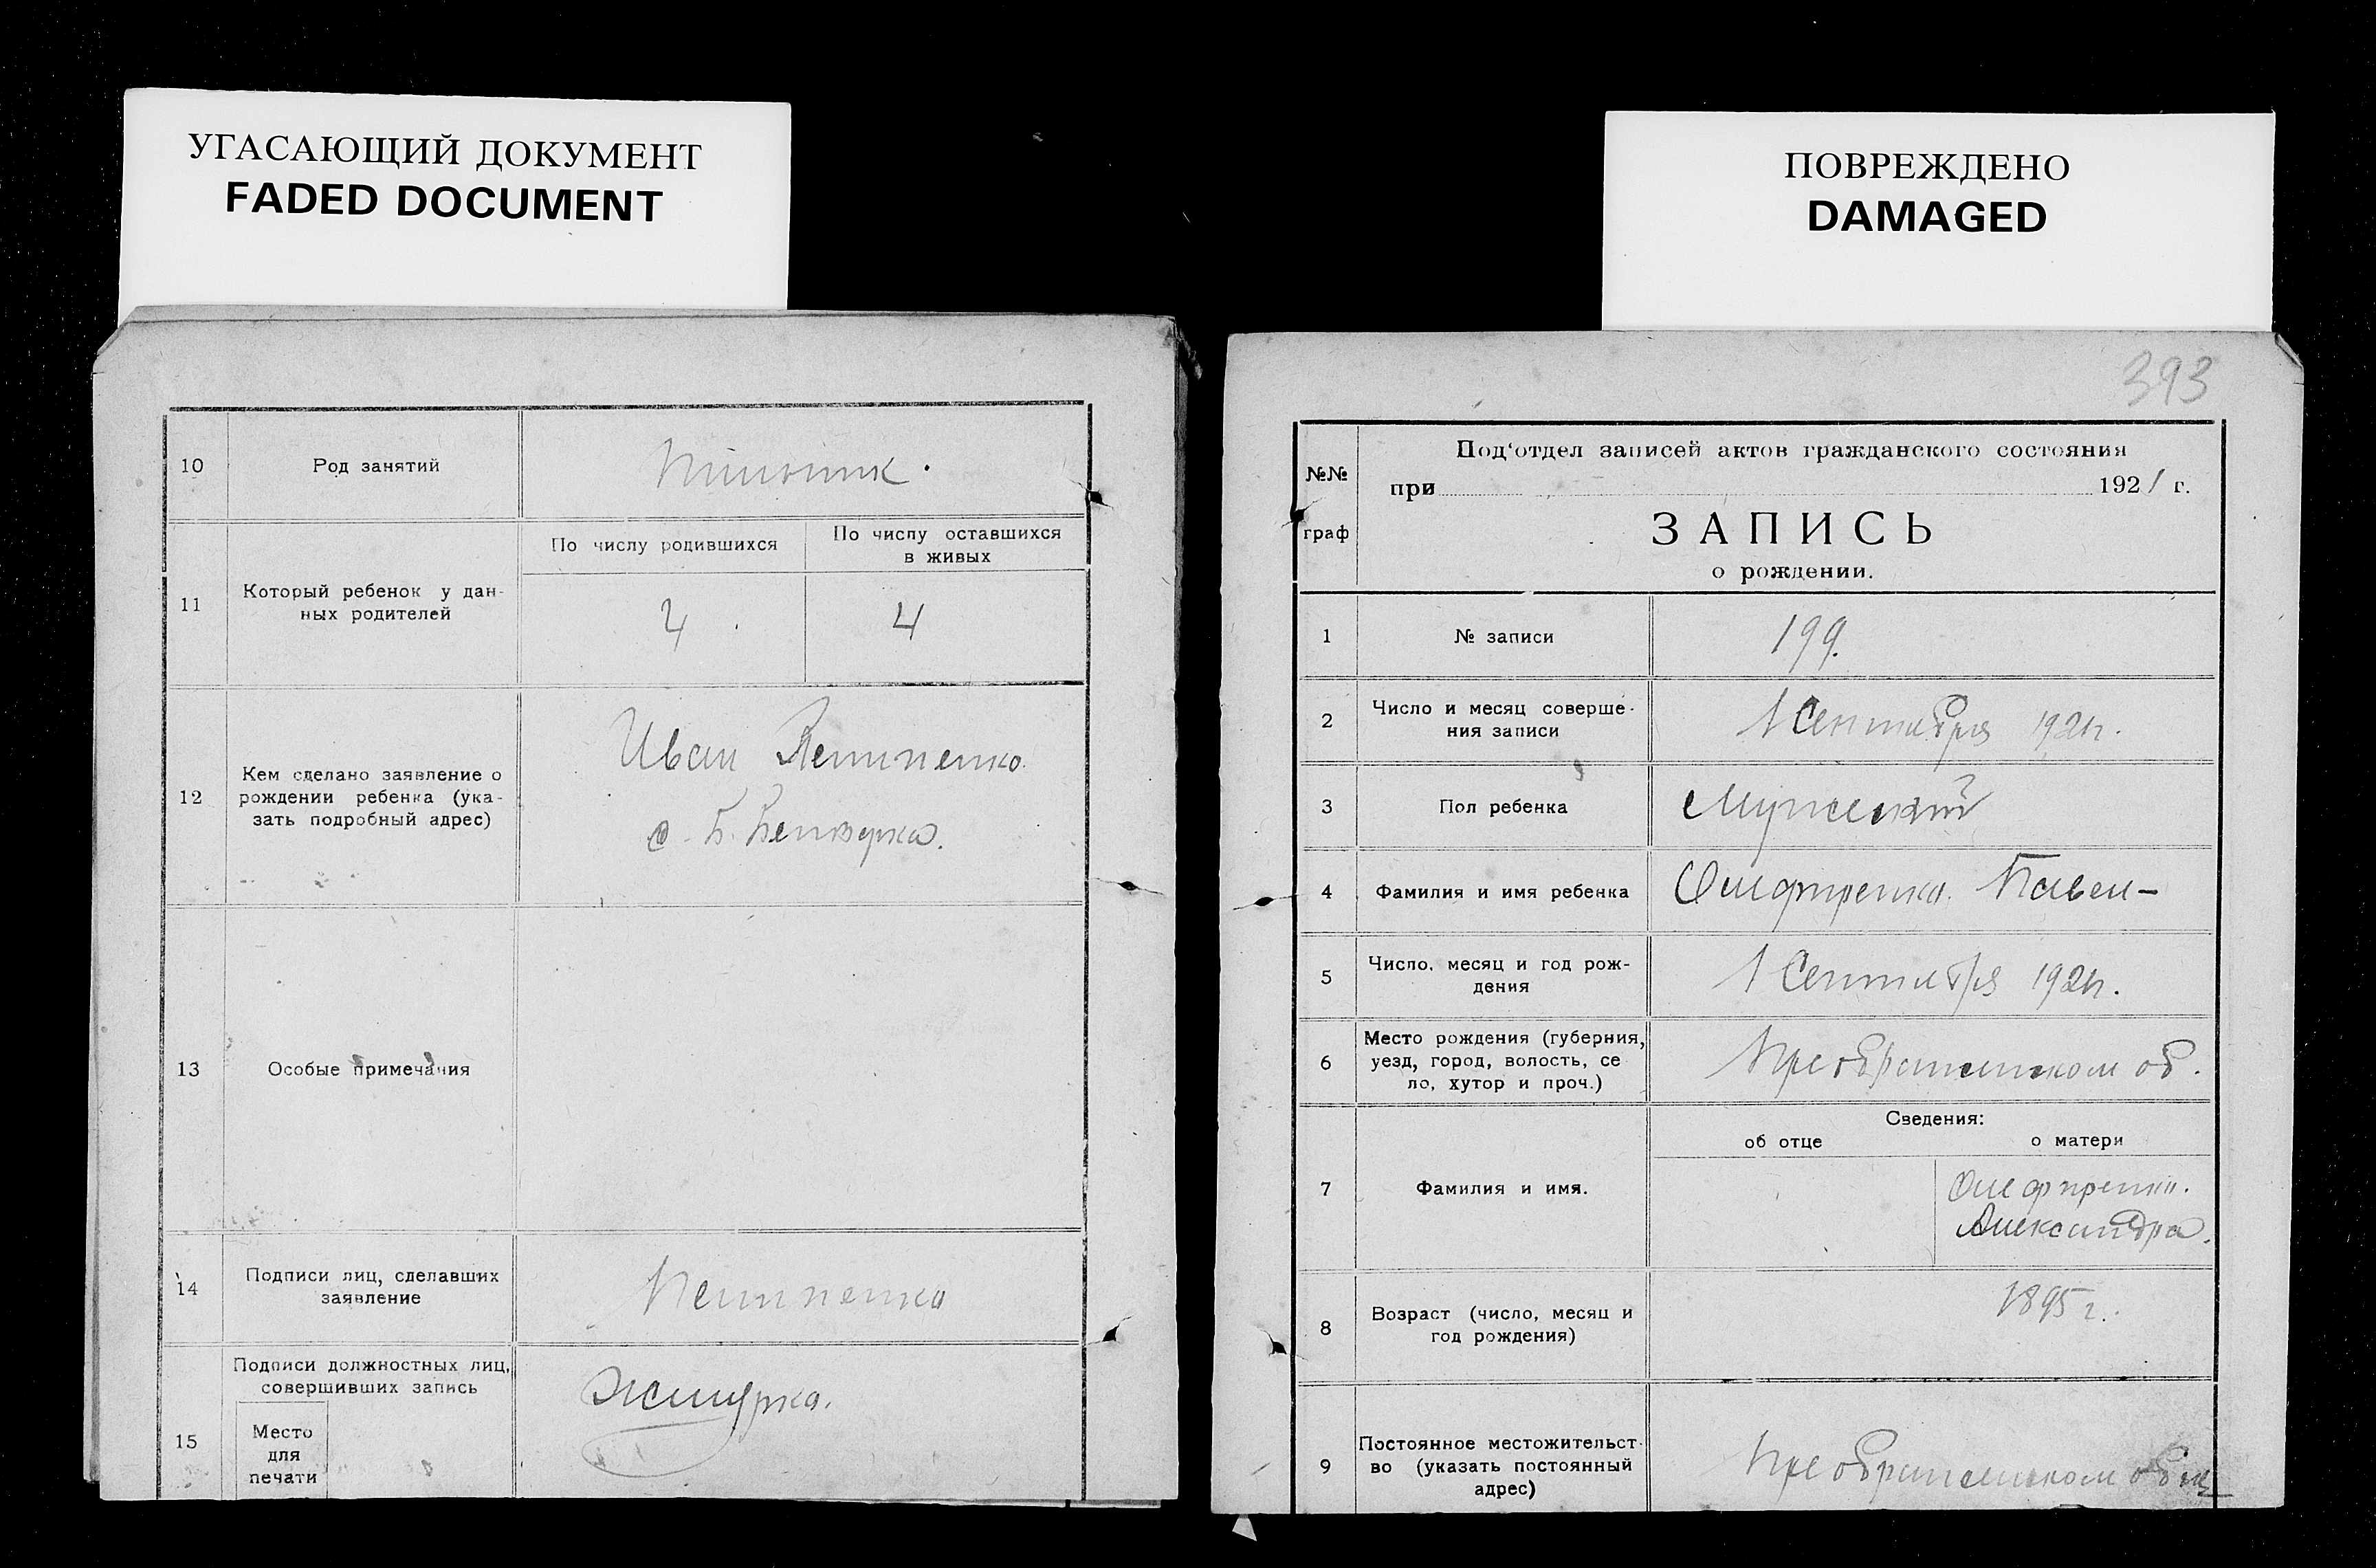 УГАСАЮЩИЙ ДОКУМЕНТ
FADED DOCUMENT
10
Род занятий
11
Который ребенок у дан-
ных родителей
По числу родившихся
По числу оставшихся
в живых
4
4
12
Кем сделано заявление о
рождении ребенка (ука-
зать подробный адрес)
Иван
13
Особые примечания
14
Подписи лиц, сделавших
заявление
15
Подписи должностных лиц,
совершивших запись
Место
для
печати
ПОВРЕЖДЕНО
DAMAGED
393
№№
граф
Под'отдел записей актов гражданского состояния
при 1921 г.
ЗАПИСЬ
о рождении.
1
№ записи
199.
2
Число и месяц соверше-
ния записи
1 Сентября 1921г.
3
Пол ребенка
Мужеский
4
Фамилия и имя ребенка
Павел
5
Число, месяц и год рож-
дения
1 Сентября 1921г.
6
Место рождения (губерния,
уезд, город, волость, се
ло, хутор и проч.)
об.
7
Фамилия и имя.
Сведения:
об отце
о матери
Александра.
8
Возраст (число, месяц и
год рождения)
1895 г.
9
Постоянное местожительст-
во (указать постоянный
адрес)